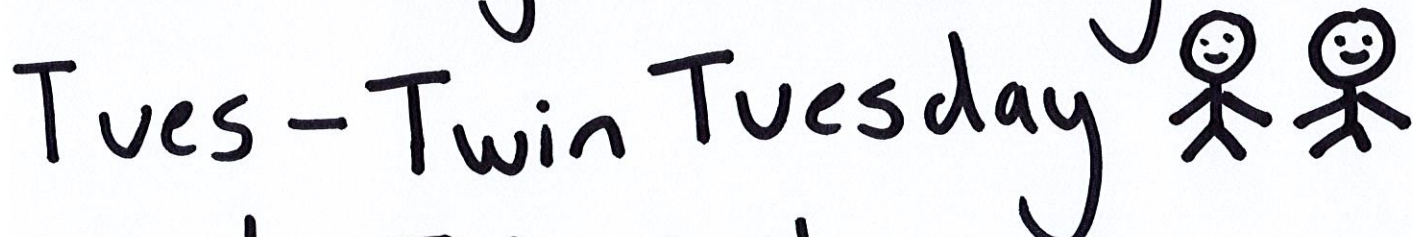 Tues - Twin Tuesday